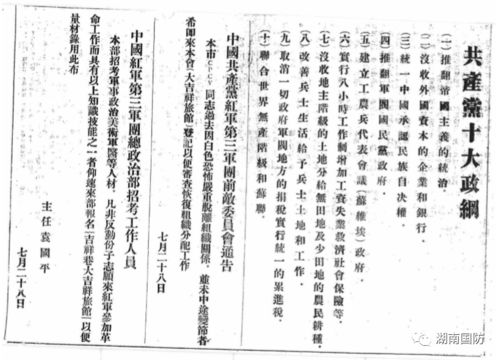 共產黨十大政綱
(一)推翻帝國主義的統治.
(二)沒收外國資本的企業和銀行.
(三)統一中國承認民族自決權.
(四)推翻軍閥國民黨政府.
(五)建立工農兵代表會議(蘇維埃)政府.
(六)實行八小時工作制增加工資失業救濟社會保險等.
(七)沒收地主階級的土地分給無田地及少田地的農民耕種.
(八)改善兵士生活給予兵士土地和工作.
(九)取消一切政府軍閥地方的捐稅實行統一的累進稅.
(十)聯合世界無產階級和蘇聯.
中國共產黨紅軍第三軍團前敵委員會通告
本市同志過去因白色恐怖嚴重脫離組織關係，並未中途變節者
希即來本會(大吉祥旅館)登記以便審查恢復組織分配工作
七月二十八日
中國紅軍第三軍團總政治部招考工作人員
本部招考軍事政治美術軍醫等人材，凡非反動份子志願來紅軍參加革
命工作而具有以上知識技能之一者仰速來部報名(吉祥巷大吉祥旅館)以便
量材錄用此布
主任袁國平
七月二十八日
湖南国防